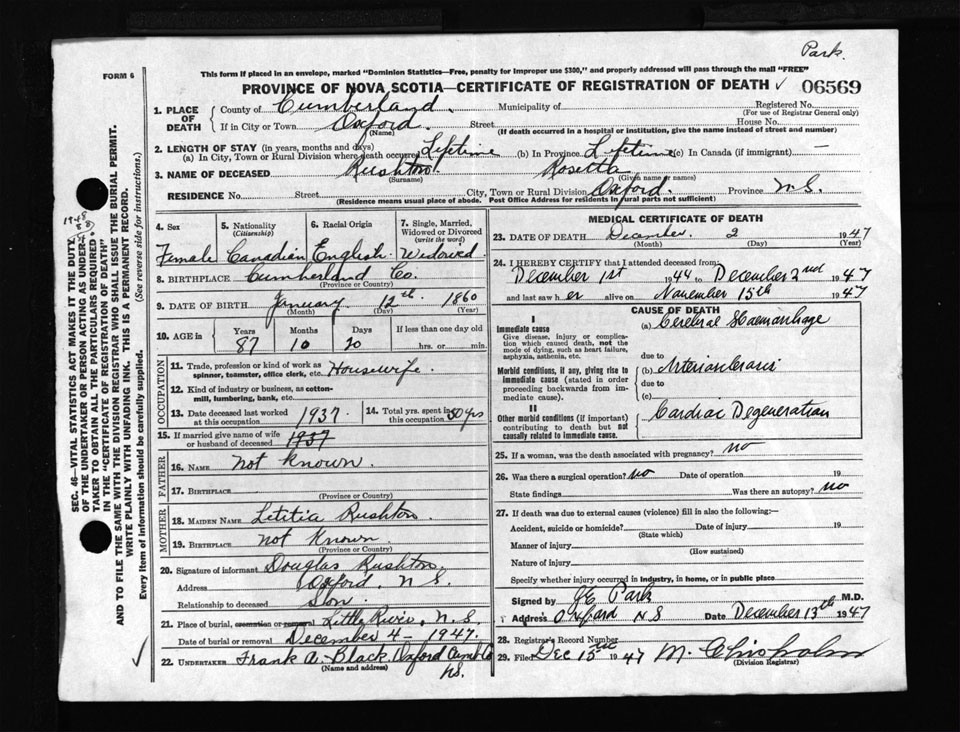 Park
FORM 6
This form if placed in an envelope, marked "Dominion Statistics—Free, penalty for improper use $300," and properly addressed will pass through the mail "FREE"
PROVINCE OF NOVA SCOTIA—CERTIFICATE OF REGISTRATION OF DEATH ✓ 06569
1. PLACE OF DEATH
County of Cumberland. Municipality of Registered No.
(For use of Registrar General only)
If in City or Town Oxford. Street House No.
(Name) (If death occurred in a hospital or institution, give the name instead of street and number)
2. LENGTH OF STAY (in years, months and days)
(a) In City, Town or Rural Division where death occurred Lifetime (b) In Province Lifetime (c) In Canada (if immigrant) —
3. NAME OF DECEASED Rushton. Rosetta
(Surname) (Given name or names)
RESIDENCE No. Street City, Town or Rural Division Oxford. Province N.S.
(Residence means usual place of abode. Post Office Address for residents in rural parts not sufficient)
SEC. 46—VITAL STATISTICS ACT MAKES IT THE DUTY OF THE UNDERTAKER OR PERSON ACTING AS UNDERTAKER TO OBTAIN ALL THE PARTICULARS REQUIRED IN THE "CERTIFICATE OF REGISTRATION OF DEATH" AND TO FILE THE SAME WITH THE DIVISION REGISTRAR WHO SHALL ISSUE THE BURIAL PERMIT.
WRITE PLAINLY WITH UNFADING INK. THIS IS A PERMANENT RECORD.
Every item of information should be carefully supplied. (See reverse side for instructions.)
4. Sex 5. Nationality (Citizenship) 6. Racial Origin 7. Single, Married, Widowed or Divorced (write the word)
Female Canadian English Widowed
8. BIRTHPLACE Cumberland Co.
(Province or Country)
9. DATE OF BIRTH January 12th. 1860
(Month) (Day) (Year)
10. AGE in Years Months Days If less than one day old
87 10 20 hrs. or min.
OCCUPATION
11. Trade, profession or kind of work as spinner, teamster, office clerk, etc. Housewife.
12. Kind of industry or business, as cotton-mill, lumbering, bank, etc.
13. Date deceased last worked at this occupation 1937. 14. Total yrs. spent in this occupation 50 yrs
15. If married give name of wife or husband of deceased 1937
FATHER
16. NAME not known.
17. BIRTHPLACE
(Province or Country)
MOTHER
18. MAIDEN NAME Letitia Rushton.
19. BIRTHPLACE not known
(Province or Country)
20. Signature of informant Douglas Rushton.
Address Oxford, N.S.
Relationship to deceased Son.
21. Place of burial, cremation or removal Little River, N.S.
Date of burial or removal December 4 - 1947.
22. UNDERTAKER Frank A. Black. Oxford Cumb Co
(Name and address) N.S.
MEDICAL CERTIFICATE OF DEATH
23. DATE OF DEATH December 2 1947
(Month) (Day) (Year)
24. I HEREBY CERTIFY that I attended deceased from:
December 1st 1944 to December 2nd 1947
and last saw her alive on November 15th 1947
CAUSE OF DEATH
I
Immediate cause
Give disease, injury or complication which caused death, not the mode of dying, such as heart failure, asphyxia, asthenia, etc.
(a) Cerebral Haemorrhage
due to
Morbid conditions, if any, giving rise to immediate cause (stated in order proceeding backwards from immediate cause).
(b)
due to
(c)
II
Other morbid conditions (if important) contributing to death but not causally related to immediate cause.
Cardiac Degeneration
25. If a woman, was the death associated with pregnancy? no
26. Was there a surgical operation? no Date of operation 19
State findings Was there an autopsy? no
27. If death was due to external causes (violence) fill in also the following:—
Accident, suicide or homicide? Date of injury 19
(State which)
Manner of injury
(How sustained)
Nature of injury
Specify whether injury occurred in industry, in home, or in public place
Signed by Park M.D.
Address Oxford N S Date December 13th 1947
28. Registrar's Record Number
29. Filed Dec 15th 1947 M. Chisholm
(Division Registrar)